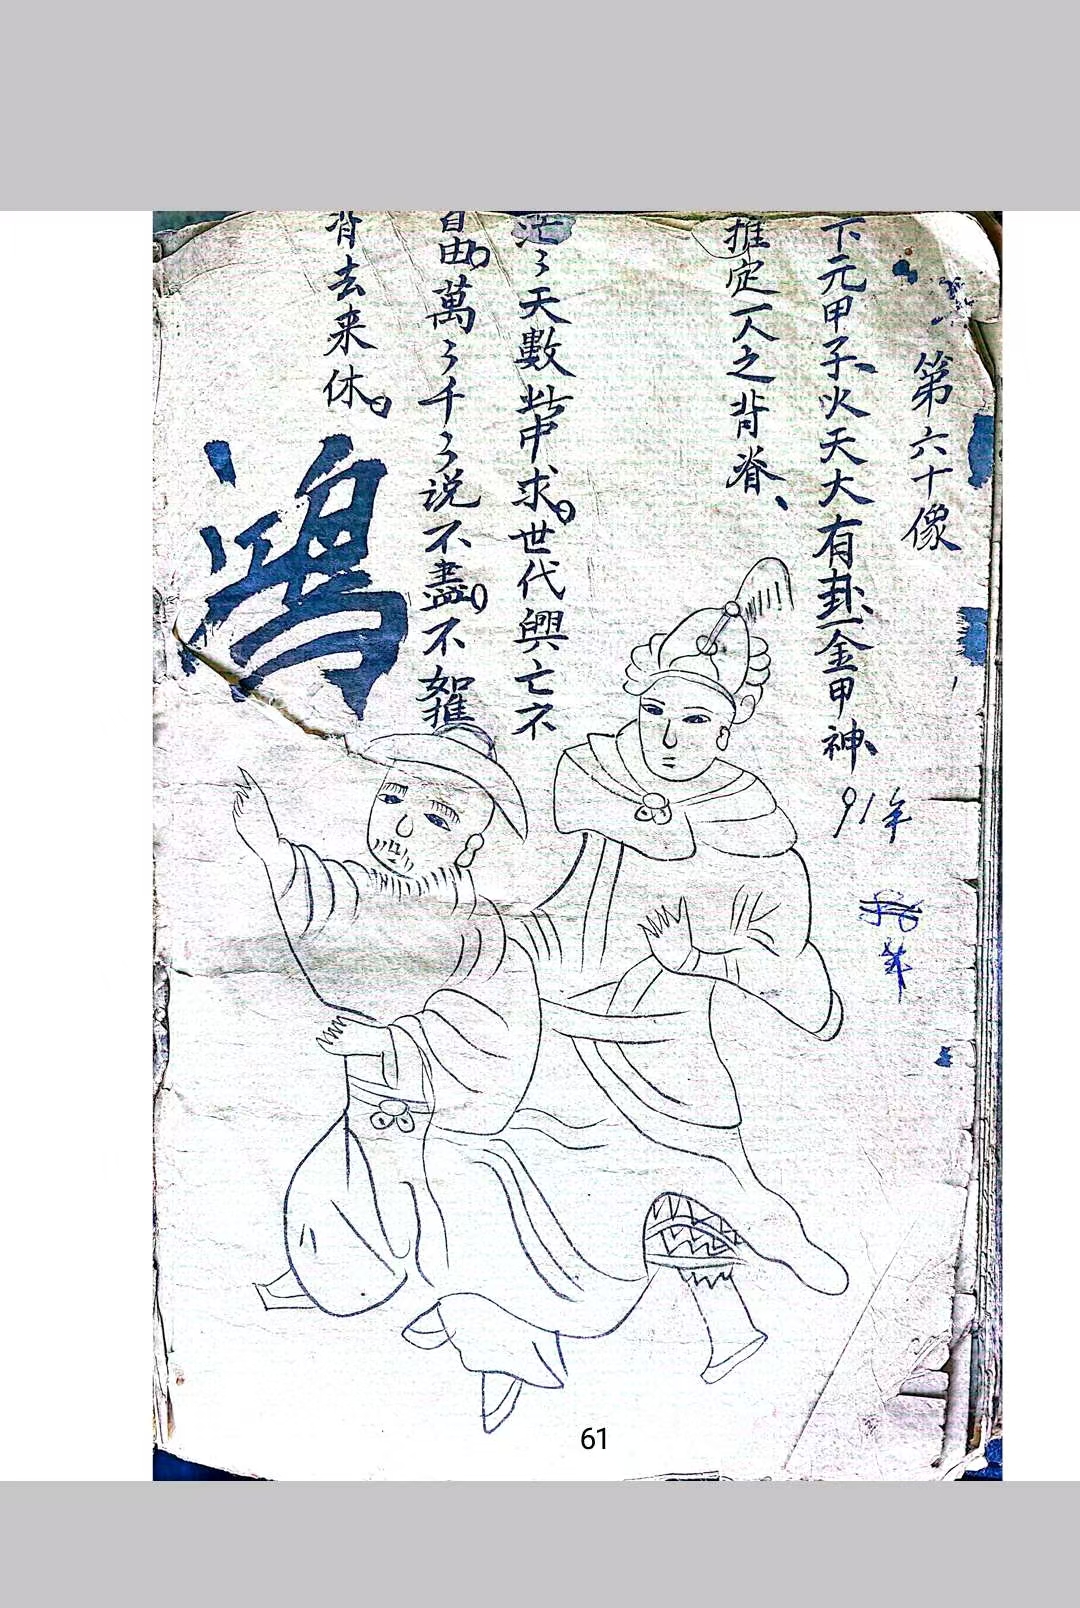 第六十像
下元甲子、火天大有卦、金甲神、91年
推定一人之背脊、
茫々天數此中求。世代興亡不
自由。萬々千々说不盡。不如推
背去来休。
鴻
61